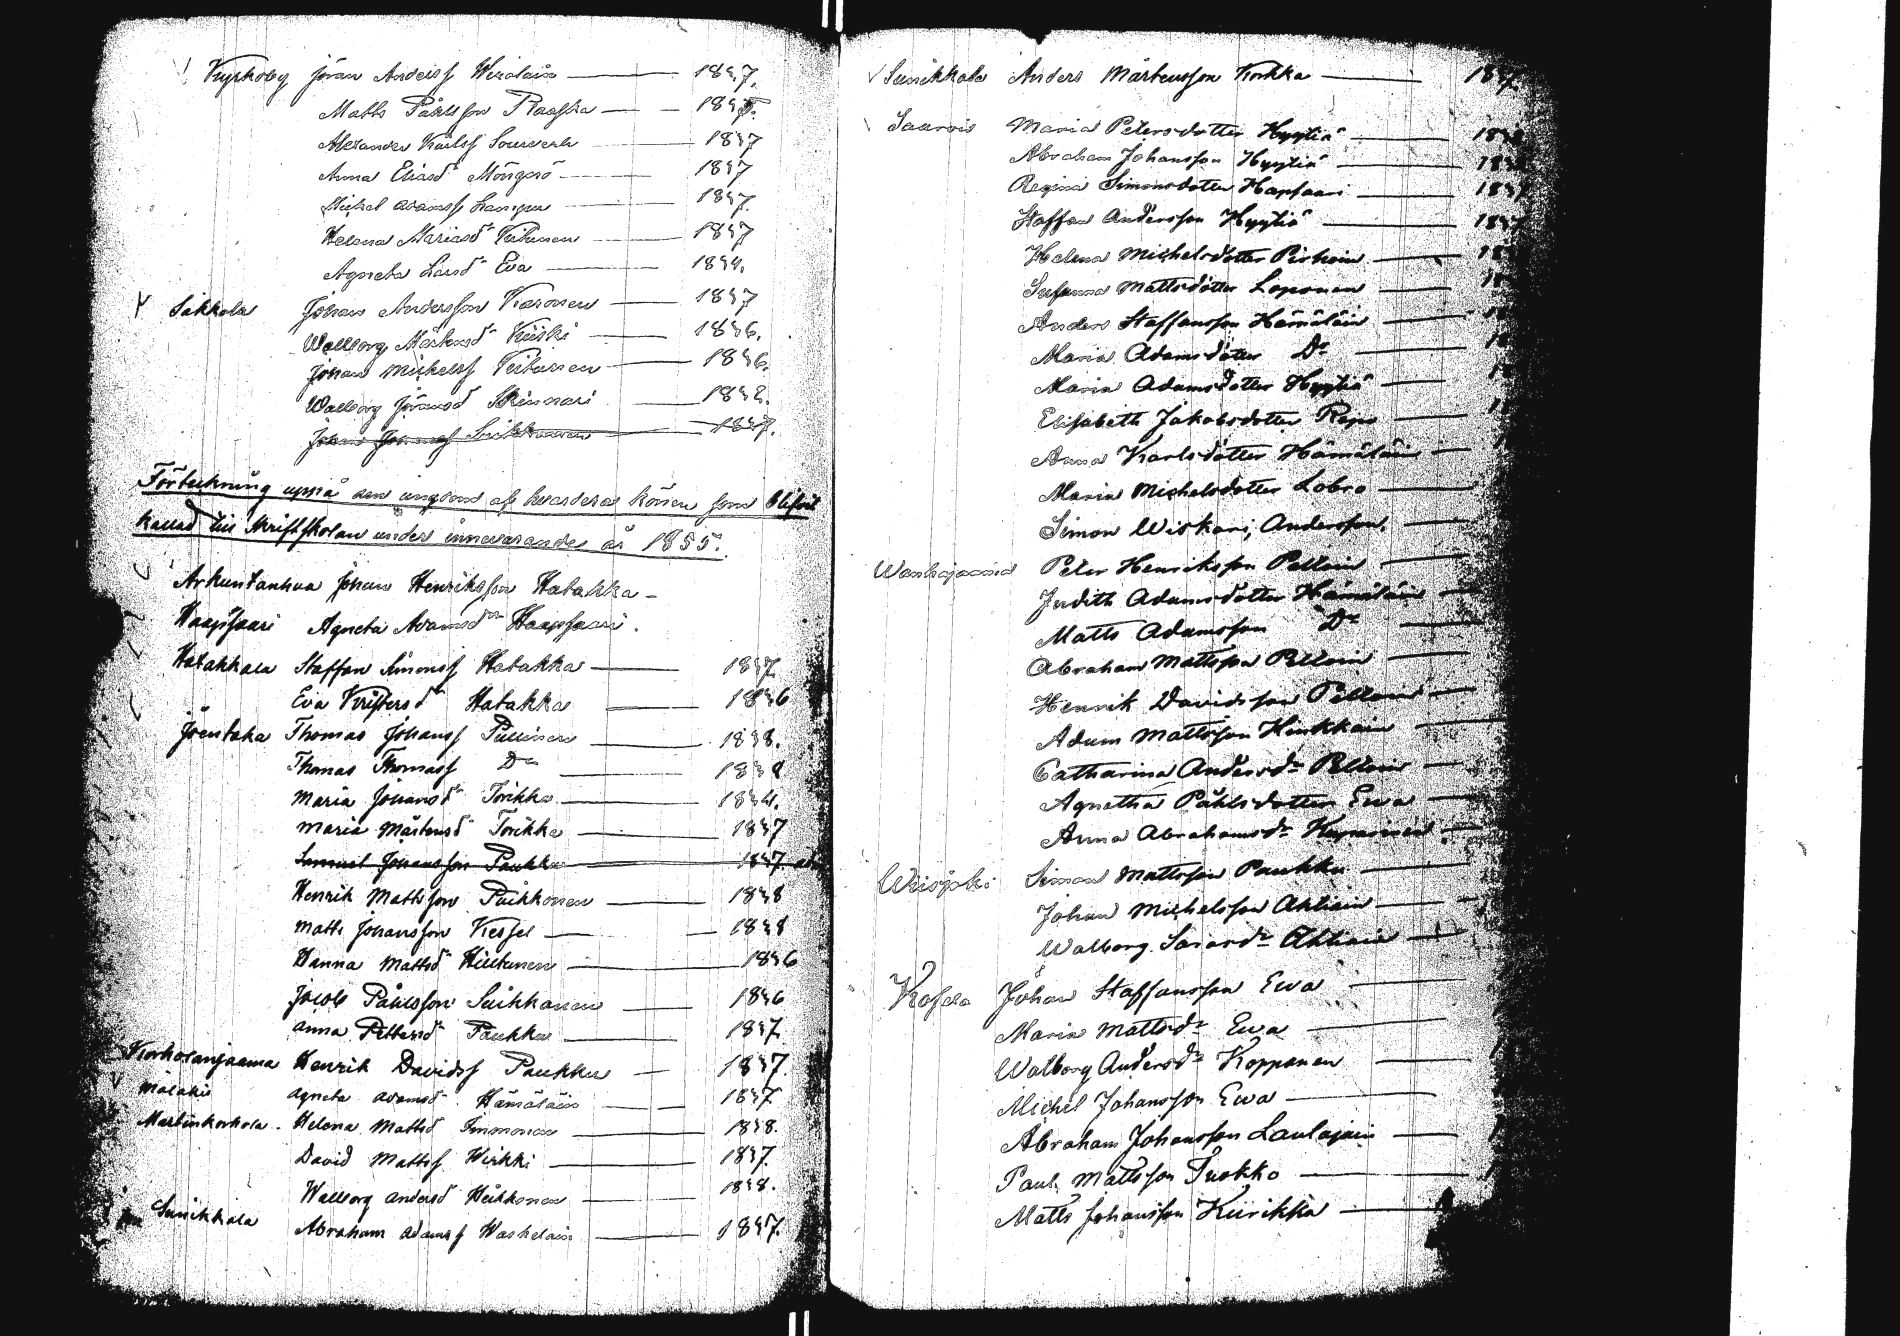 Kyrkoby Jöran Anderss Wirolain 1837.
Matts Påhlsson Raaska 1837.
Alexander Karlss 1837
Anna Eliasdr 1837
Michel Adamss 1837.
Helena Mariasdr Virtanen 1837
Agneta Larsdr Eva
Sakkola Johan Andersson Karonen 1837
Walborg Mårtensdr Kiiski 1836.
Johan Mickelss 1836.
Walborg Jöransd Skinnari
Johan 1837.
Förteckning uppå den ungdom af hvardera könen som blifvit
kallad till Skriftskolan under innevarande år 1855.
Arkuntanhua Johan Henriksson Hatakka
Haapsaari Agneta Adamsdr Haapsaari.
Hatakkala Staffan Simonss Hatakka 1837
Eva Kristersdr Hatakka 1836
Jöentaka Thomas Johanss Pullinen 1838.
Thomas Thomass Do
Maria Johansdr Torikka
Maria Mårtensd Torikka 1837
Samuel Johansson Paukku 1837.
Henrik Mattsson Puikkonen 1838
Matts Johansson Kessel 1838
Hanna Mattsdr 1836
Jacob Påhlsson Suikkanen 1836
Anna Pettersdr Paukku 1837
Korkolanjaama Henrik Davidss Paukku 1837.
Mälakis Agneta Adamsdr Hämäläin 1837
Martinkorkola Helena Mattsd Immonen 1838.
David Mattss Wirkki 1837.
Walborg Andersd Heikkonen 1838.
Suuikkala Abraham Adamss Waskelain 1837.
Suuikkala Anders Mårtensson Korkka
Saarois Maria Petersdotter Hyytiä
Abraham Johansson Hyytiä
Regina Simonsdotter Hapsaari 1837
Staffan Andersson Hyytiä 1837
Helena Michelsdotter Pirhoin
Susanna Mattsdotter Loponen
Anders Staffansson Hämäläin
Maria Adamsdotter Do
Maria Adamsdotter Hyytiä
Elisabeth Jakobsdotter Repo
Anna Karlsdotter Hämäläin
Maria Michelsdotter Lobro
Simon Wiskari, Andersson.
Wanhajaama Peter Henriksson Pelloin
Judith Adamsdotter Hämäläin
Matts Adamsson Do
Abraham Mattsson Pelloin
Henrik Davidsson Pelloin
Adam Mattsson Hinkkain
Catharina Andersdr Pelloin
Agnetha Påhlsdotter Ewa
Anna Abrahamsdr Kuparinen
Wiisjoki Simon Mattsson Paukku
Johan Michelsson Ahtiain
Walborg Ahtiain
Kosela Johan Staffansson Ewa
Maria Mattsdr Ewa
Walborg Andersdr Kopponen
Michel Johansson Ewa
Abraham Johansson Laulajain
Paul Mattsson Tuokko
Matts Johansson Kiirikka